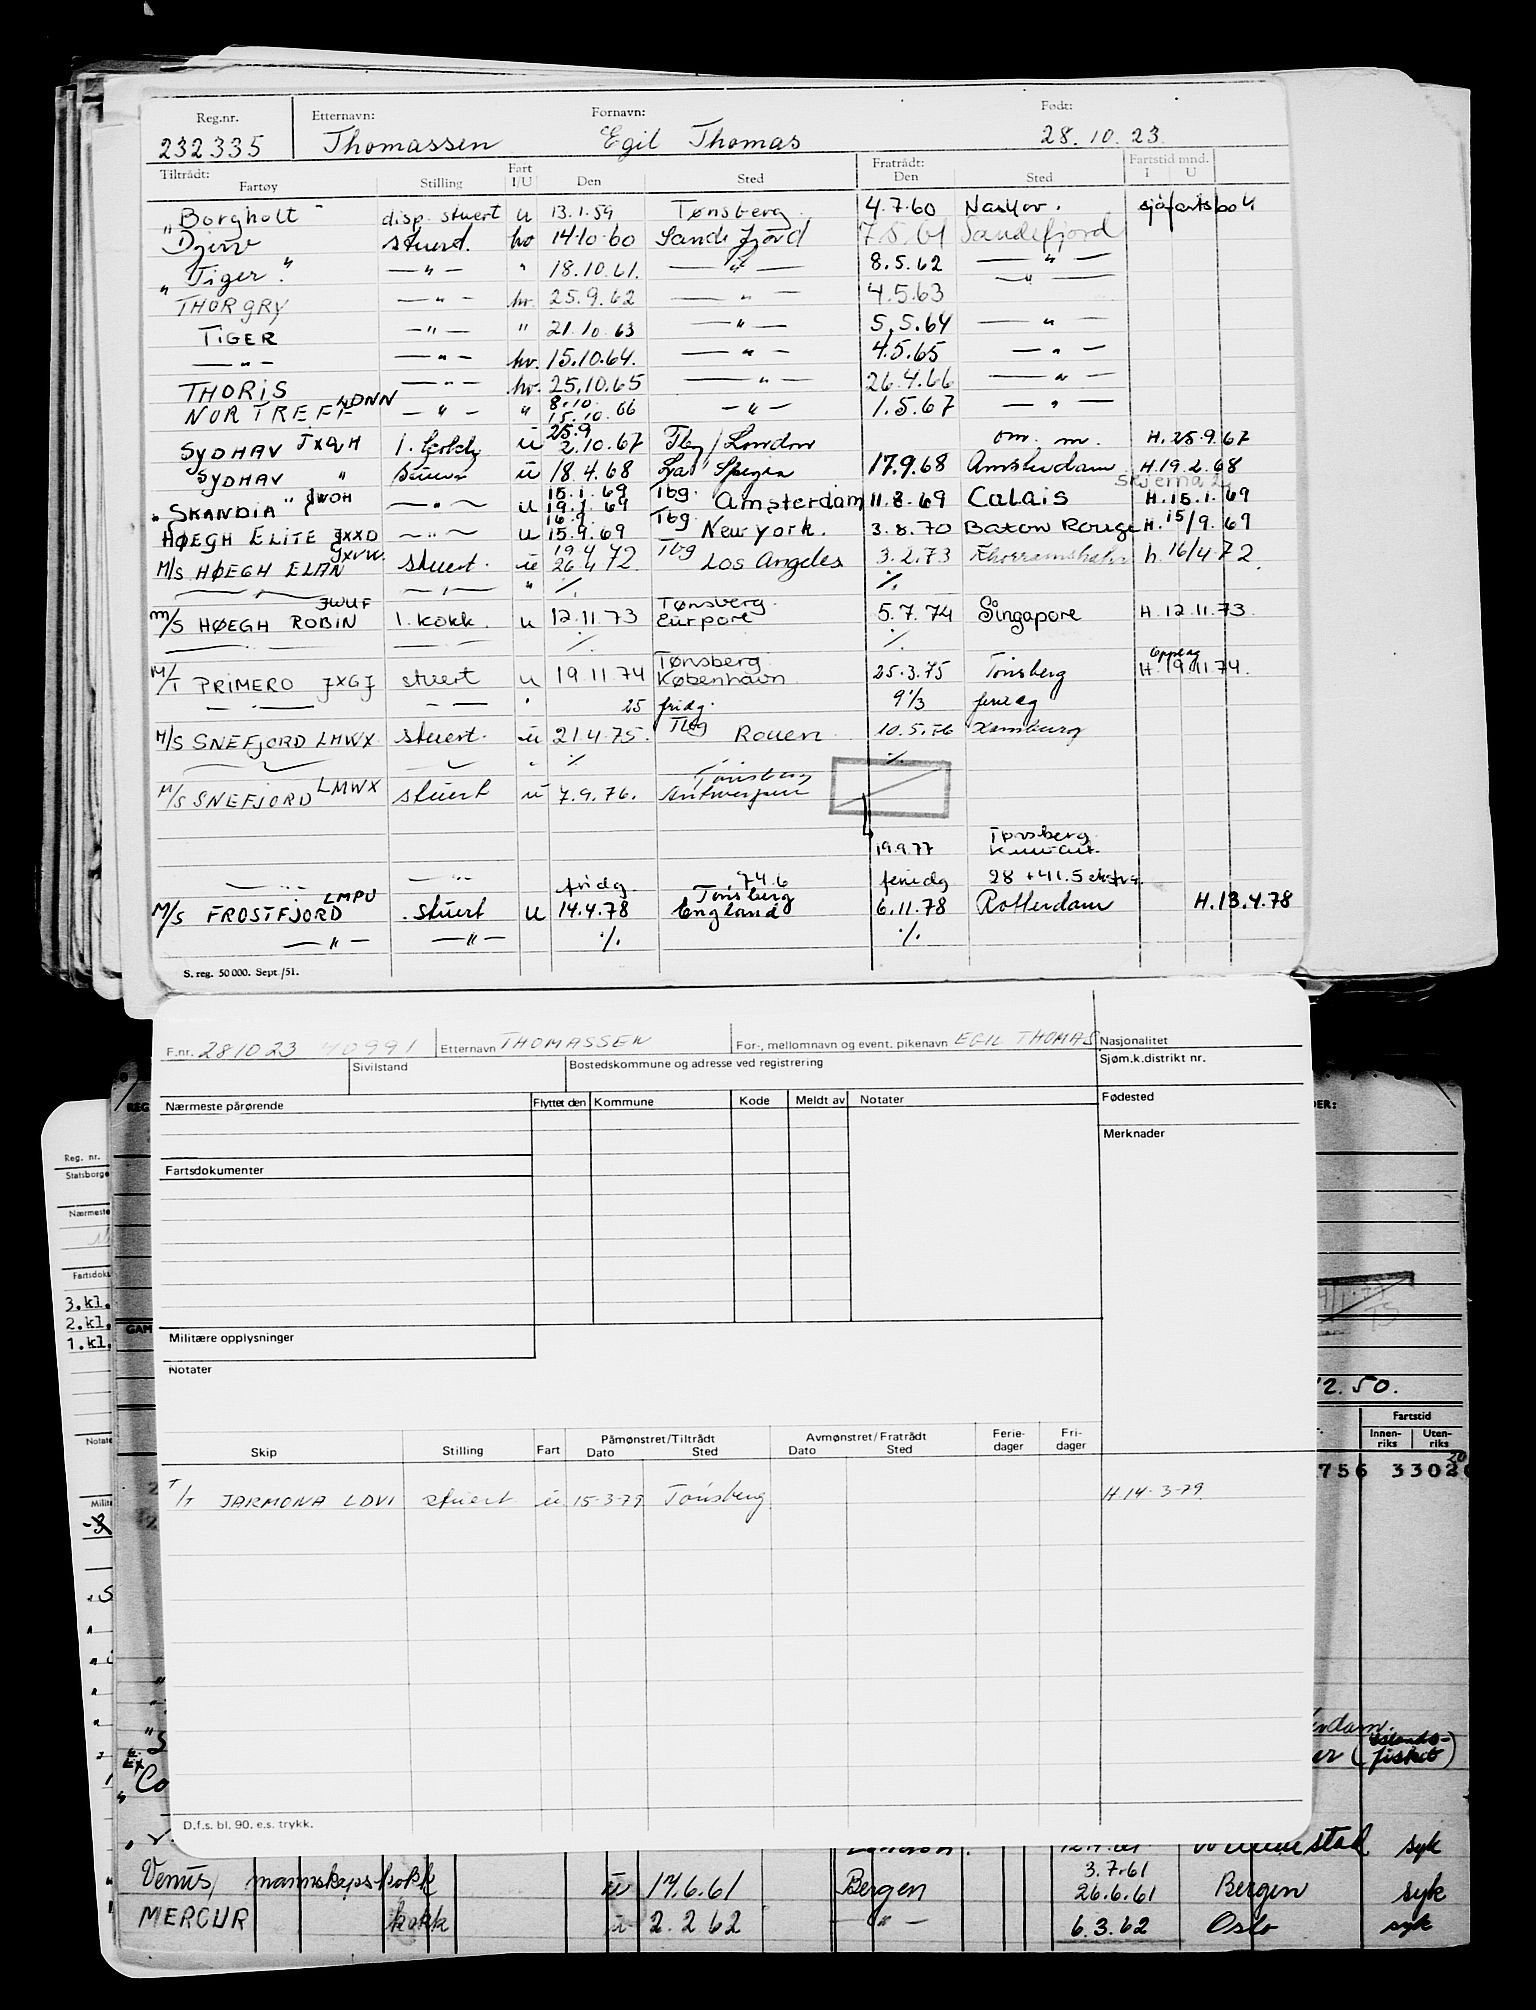 Reg.nr. Etternavn: Fornavn: Født:
232335 Thomassen Egil Thomas 28.10.23
Tiltrådt: Fratrådt: Fartstid mnd.
Fartøy Stilling Fart I/U Den Sted Den Sted I U
"Borgholt" disp. stuert u 13.1.59 Tønsberg. 4.7.60 sjøfartsbok
stuerd. hv 14.10.60 Sandefjord 7.5.61 Sandefjord
"Tiger." — " — " 18.10.61. — " — 8.5.62 — " —
THORGRY — " — hv. 25.9.62 — " — 4.5.63 — " —
TIGER — " — " 21.10.63 — " — 5.5.64 — " —
— " — — " — hv. 15.10.64. — " — 4.5.65 — " —
THORIS — " — hv. 25.10.65 — " — 26.4.66 — " —
NORTREFF LDNN — " — " 8.10. 15.10.66 — " — 1.5.67 — " —
SYDHAV JXQH 1. kokk u 25.9 2.10.67 Tbg/London om. m. H. 25.9.67
SYDHAV " stuert u 18.4.68 17.9.68 Amsterdam H.19.2.68
skjema 2
"SKANDIA" JWOH — " — u 15.1.69 19.1.69 Tbg. Amsterdam 11.8.69 Calais H.15.1.69
HØEGH ELITE JXXD — " — u 16.9. 15.9.69 Tbg. New york. 3.8.70 Baton Rouge H. 15/9.69
M/S HØEGH ELAN stuert. u 19.4 26.4 72 Tbg Los Angeles 3.2.73 h. 16/4-72
— " — — " — " ./. ./.
M/S HØEGH ROBIN JWUF 1. kokk. u 12.11.73 Tønsberg. Eurpore 5.7.74 Singapore H. 12.11.73.
./. ./.
M/T PRIMERO JXGJ stuert u 19.11.74 Tønsberg. København 25.3.75 Tønsberg Opplag H. 19.11.74.
— " — — " — " 25 fridg. 9 1/3 feriedg
M/S SNEFJORD LMWX stuert. u 21.4.75. Tbg Rouen 10.5.76 Hamburg
./. ./.
M/S SNEFJORD LMWX stuert u 7.9.76. Tønsberg Antwerpen
19.9.77 Tønsberg
— " — — " — fridg. 74.6 feriedg 28 + 41.5 ekstra.
M/S FROSTFJORD LMPU stuert u 14.4.78 Tønsberg England 6.11.78 Rotterdam H.13.4.78
— " — — " — ./. ./.
S. reg. 50 000. Sept /51.
F.nr. 281023 40991 Etternavn THOMASSEN For-, mellomnavn og event. pikenavn EGIL THOMAS Nasjonalitet
Sivilstand Bostedskommune og adresse ved registrering Sjøm.k.distrikt nr.
Nærmeste pårørende Flyttet den Kommune Kode Meldt av Notater Fødested
Merknader
Fartsdokumenter
Militære opplysninger
Notater
Skip Stilling Fart Påmønstret/Tiltrådt Dato Sted Avmønstret/Fratrådt Dato Sted Ferie-dager Fri-dager
T/T JARMONA LDVI stuert u 15-3-79 Tønsberg H 14-3-79
D.f.s. bl. 90. e.s. trykk.
Reg. nr.
Statsborge
Nærmeste
Fartsdok
3.kl.
2.kl.
1.kl.
Notate
Milit
REG
GAM
DER:
12.50.
Fartstid
Innen-riks Uten-riks
756 3302
dam.
er (Islands-fisket)
Co
syk
Venus, mannskapskokk u 17.6.61 Bergen 3.7.61 26.6.61 Bergen syk
MERCUR kokk u 2.2 62 — " — 6.3.62 Oslo syk